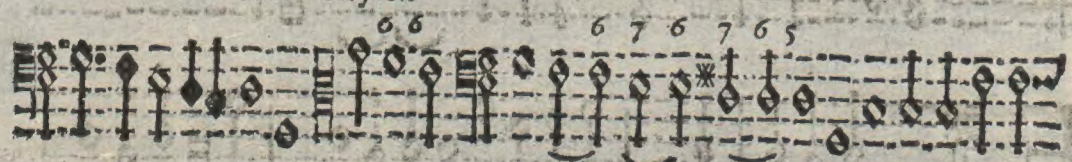 6 6 6 7 6 7 6 5